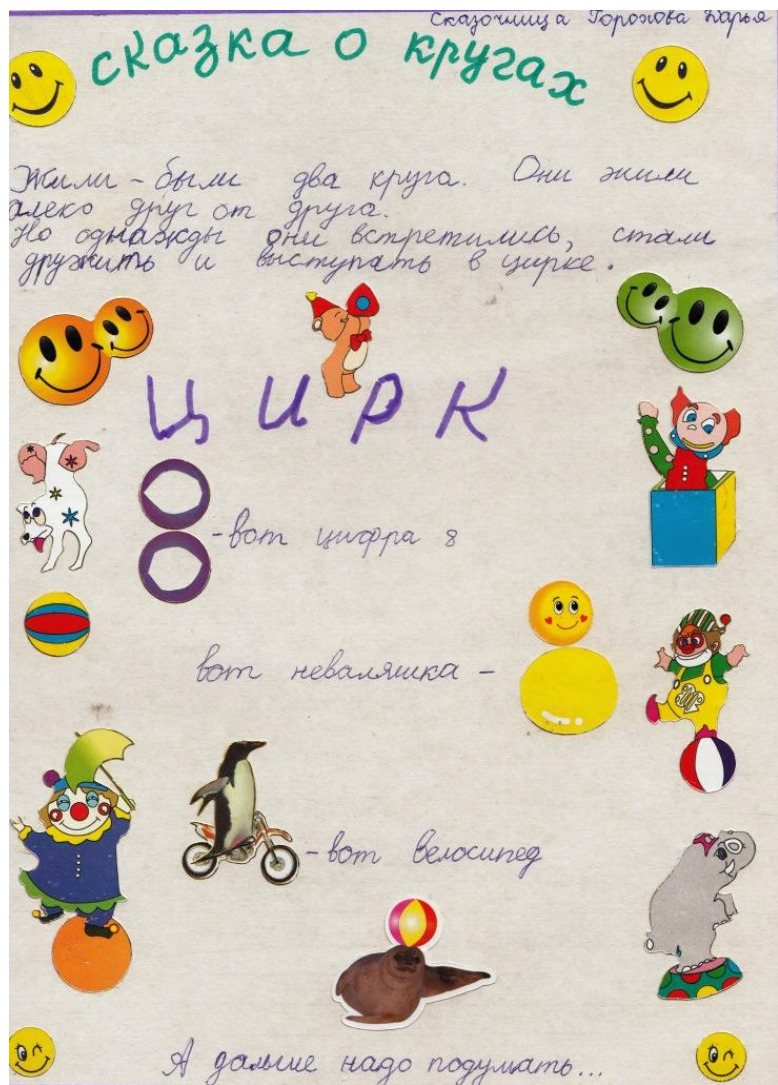 Сказочница Горохова Дарья
сказка о кругах
Жили-были два круга. Они жили
алеко друг от друга.
Но однажды они встретились, стали
дружить и выступать в цирке.
ЦИРК
-вот цифра 8
вот неваляшка -
-вот велосипед
А дальше надо подумать...